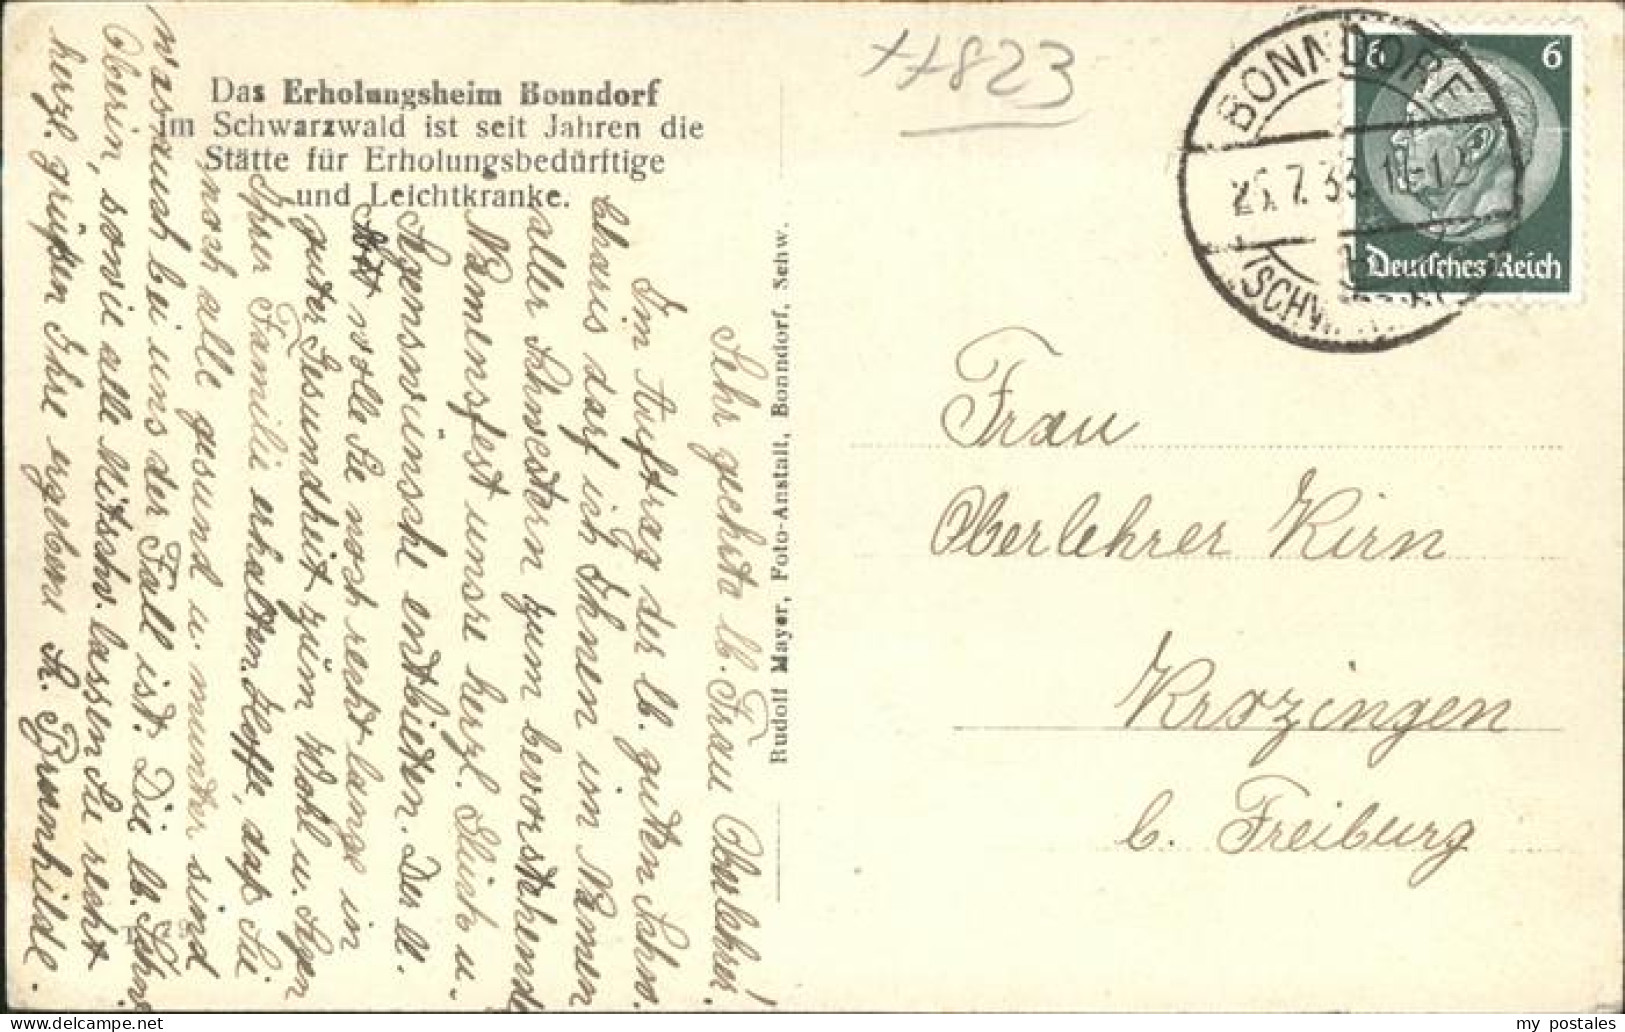 Das Erholungsheim Bonndorf
im Schwarzwald ist seit Jahren die
Stätte für Erholungsbedürftige
und Leichtkranke.
Sehr geehrte lb. Frau Oberlehrer!
Im Auftrag der lb. guten Schw.
Charis darf ich Ihnen im Namen
aller Schwestern zum bevorstehend
Namensfest unsre herzl. Glück- u.
Segenswünsche entbieten. Der lb.
Gott wolle Sie noch recht lange in
guter Gesundheit zum Wohl u. Segen
Ihrer Familie erhalten. Hoffe, daß Sie
noch alle gesund u. munter sind
was auch bei uns der Fall ist. Die lb. Schw.
Oberin, sowie alle Mitschw. lassen Sie recht
herzl. grüßen Ihre ergebene S. Brunhilde.
Rudolf Mayer, Foto-Anstalt, Bonndorf, Schw.
++823
BONNDORF
25.7.33.11-12
(SCHW
6 6
Deutsches Reich
Frau
Oberlehrer Kirn
Krozingen
b. Freiburg
my postales